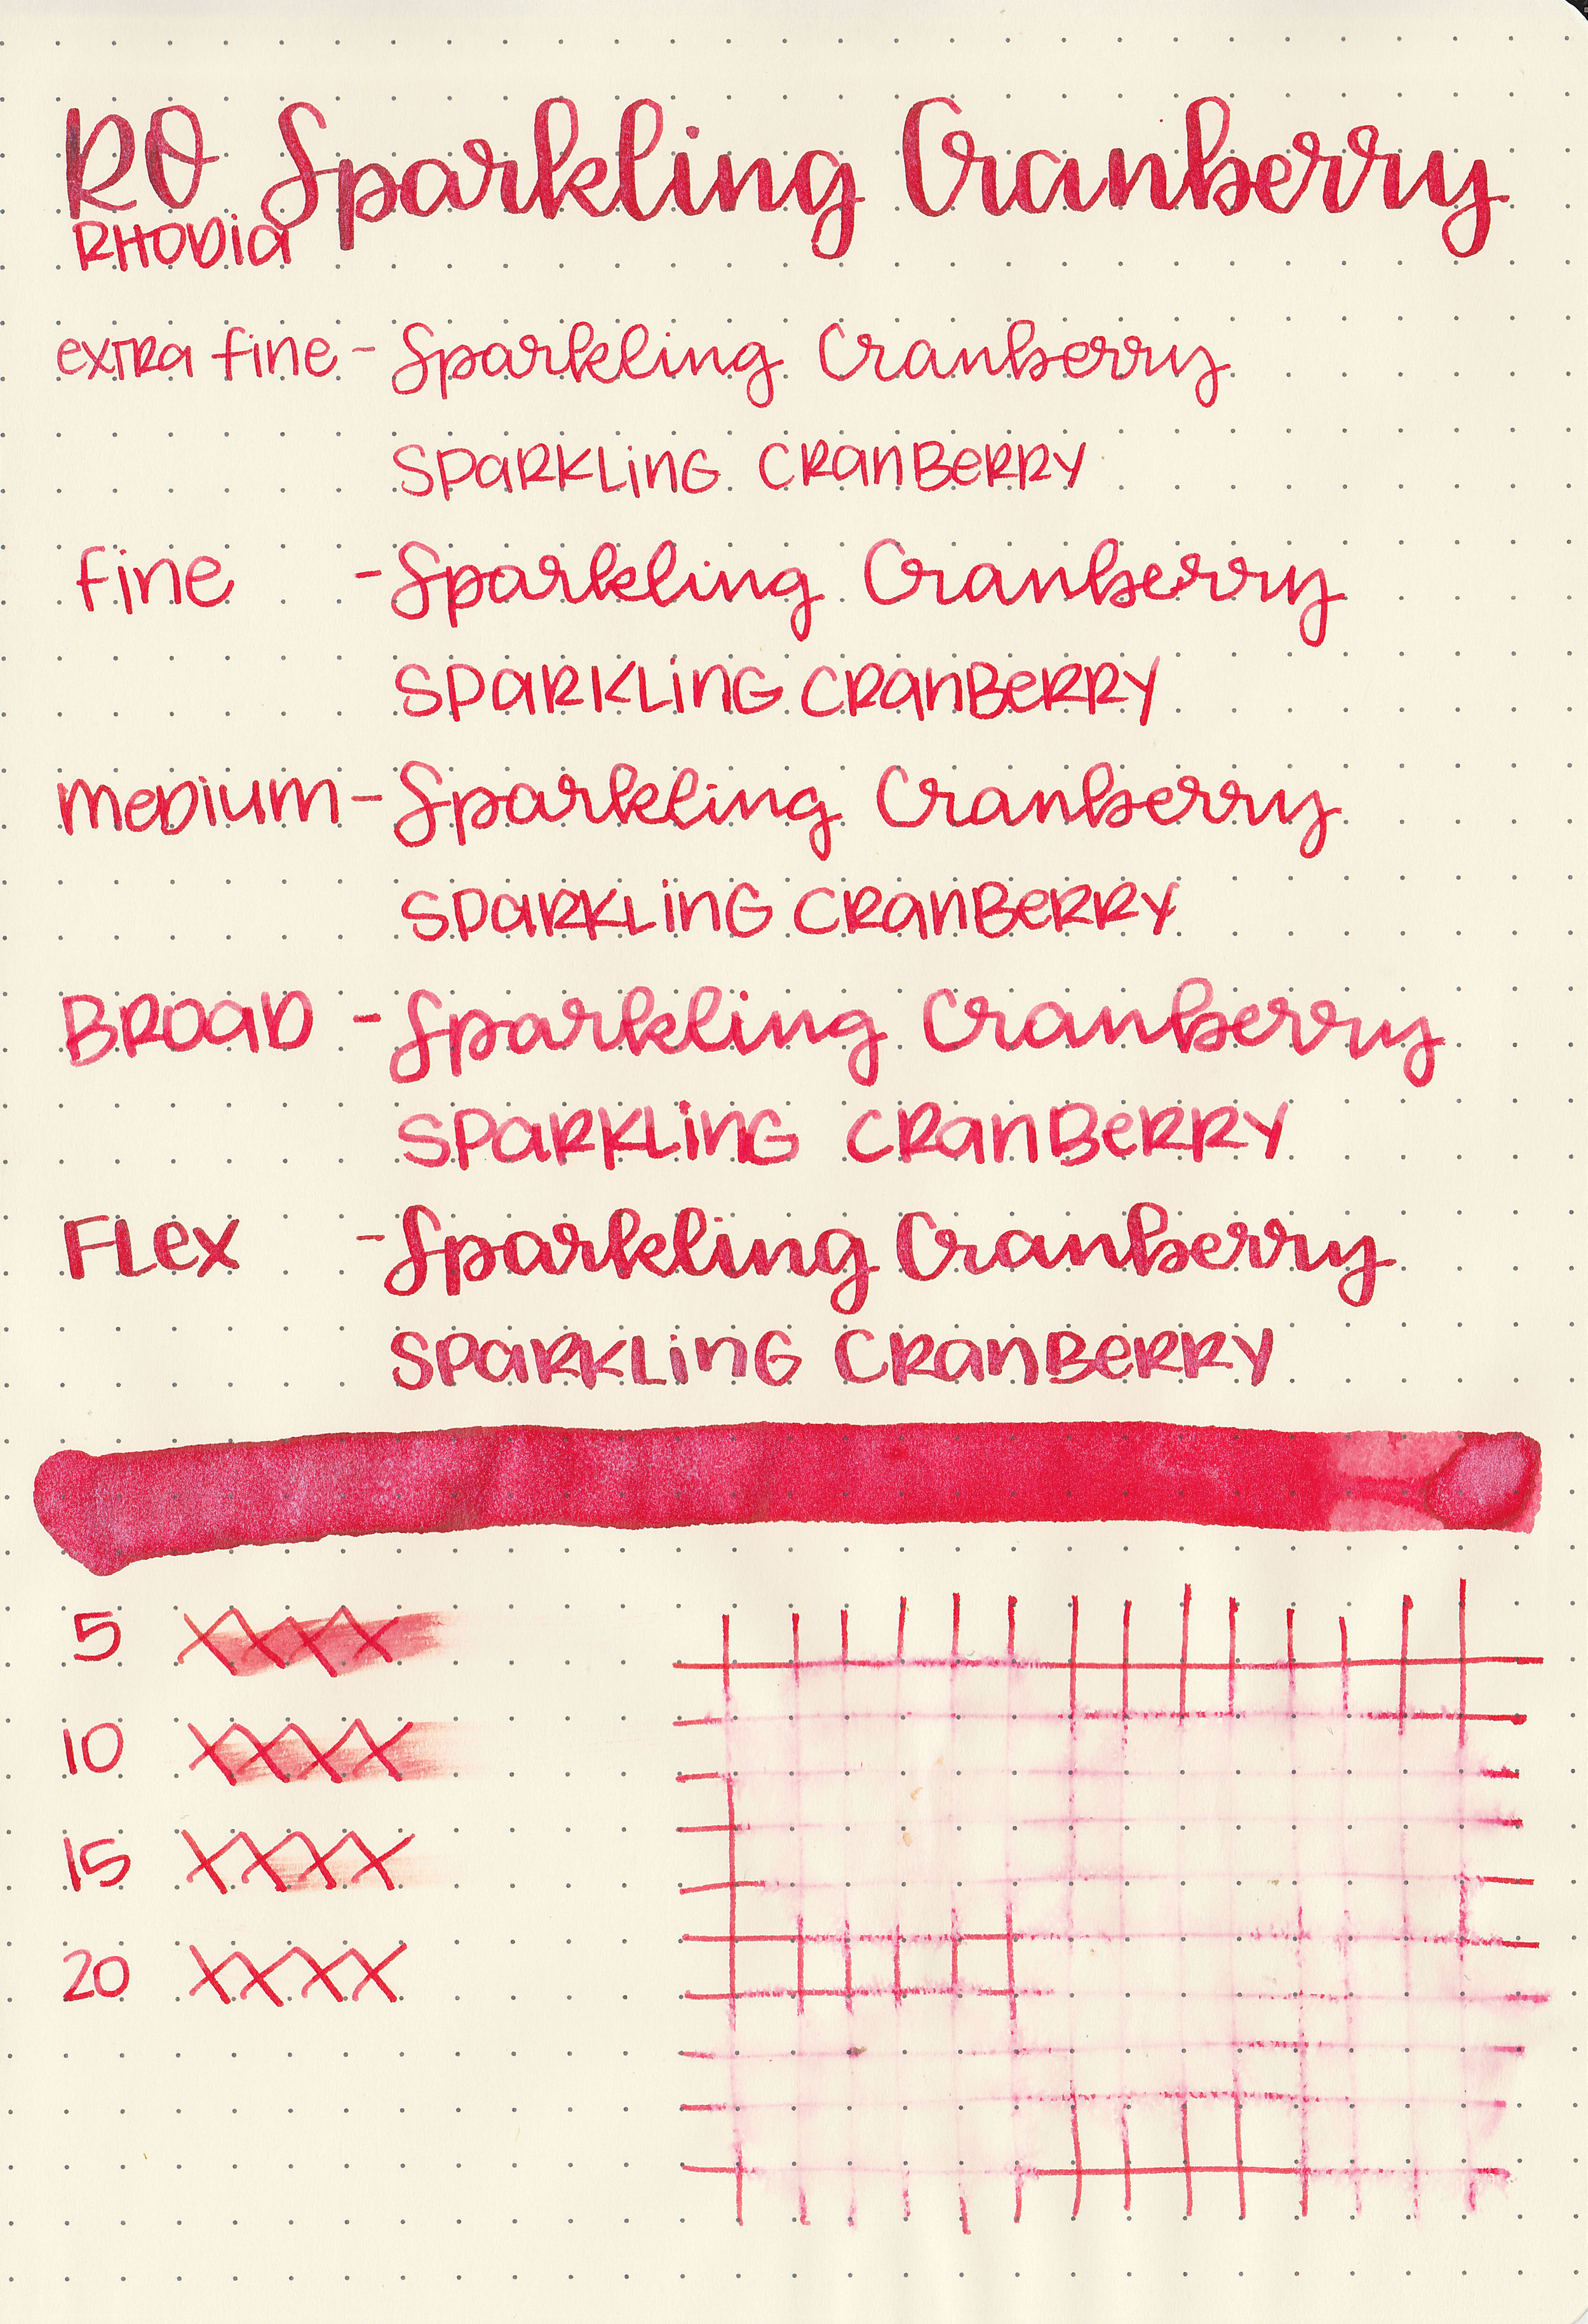 RO Sparkling Cranberry
RHODia
extra fine - Sparkling Cranberry
SPARKLinG CRanBeRRY
fine - Sparkling Cranberry
SPARKLinG CRanBeRRY
meDium - Sparkling Cranberry
SPARKLinG CRanBeRRY
BROaD - Sparkling Cranberry
SPARKLinG CRanBeRRY
FLex - Sparkling Cranberry
SPARKLinG CRanBeRRY
5 XXXX
10 XXXX
15 XXXX
20 XXXX